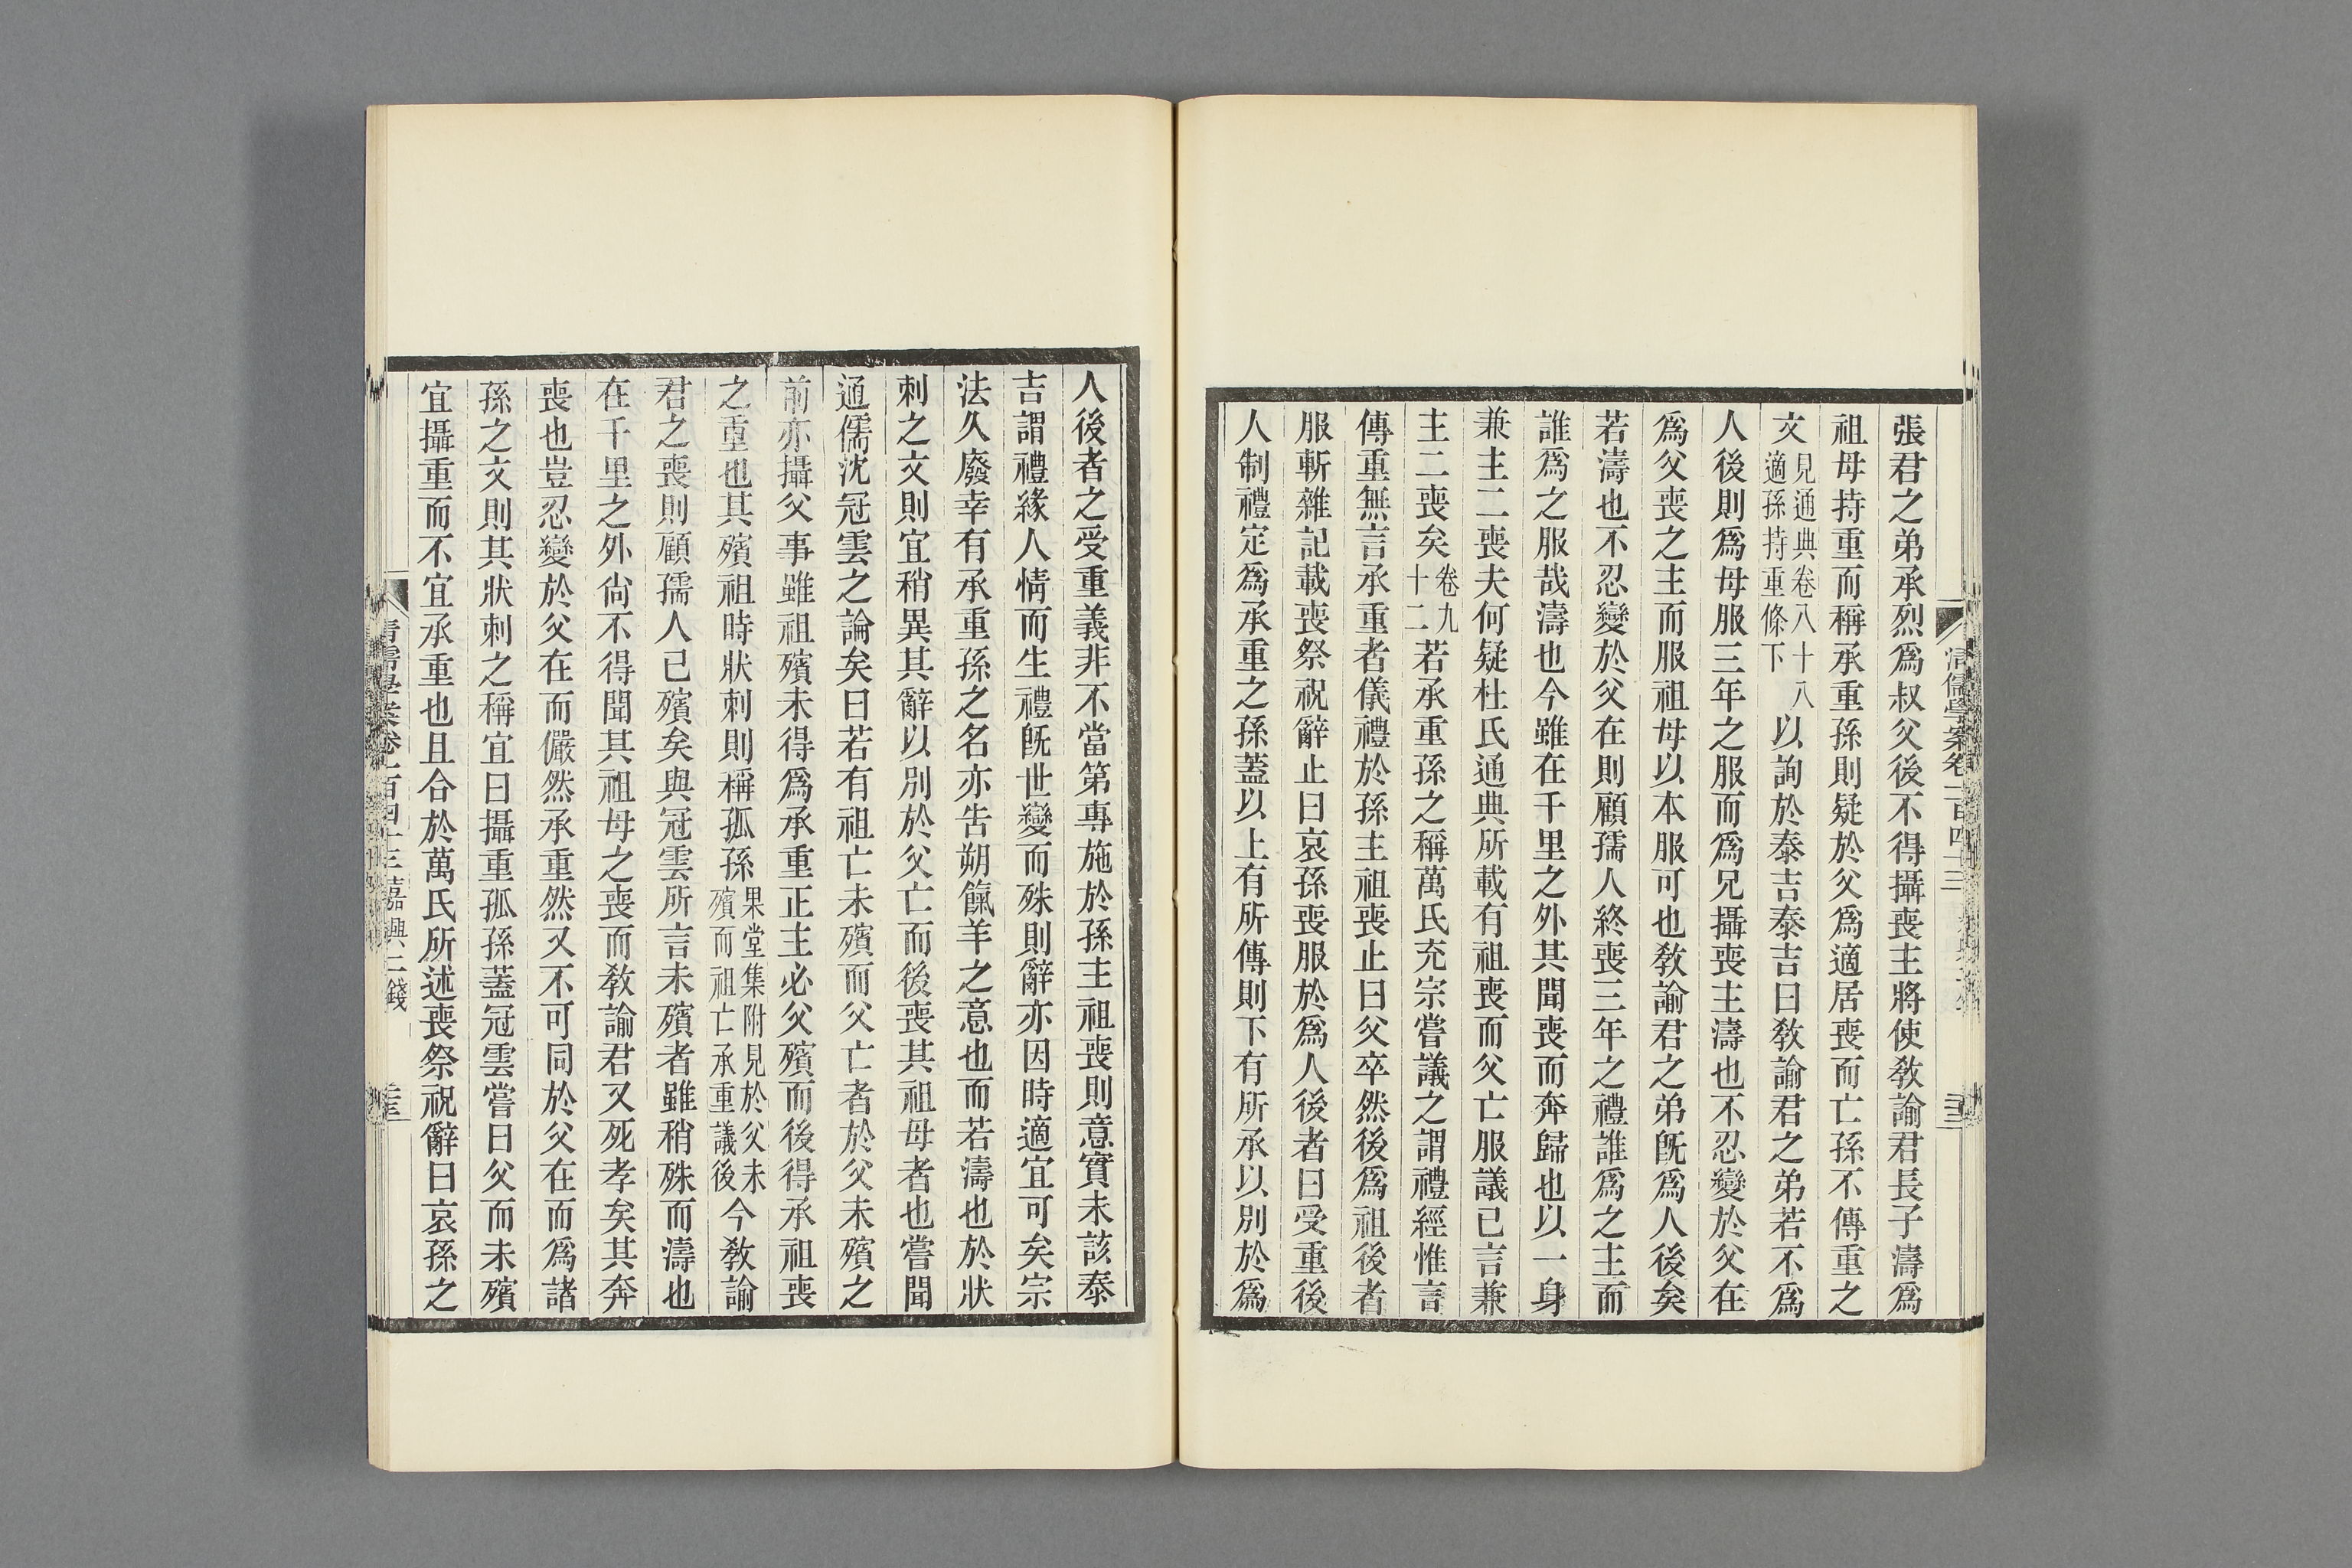 張君之弟承烈爲叔父後不得攝喪主將使敎諭君長子濤爲
祖母持重而稱承重孫則疑於父爲適居喪而亡孫不傳重之
文見通典卷八十八適孫持重條下以詢於泰吉泰吉曰敎諭君之弟若不爲
人後則爲母服三年之服而爲兄攝喪主濤也不忍變於父在
爲父喪之主而服祖母以本服可也敎諭君之弟旣爲人後矣
若濤也不忍變於父在則顧孺人終喪三年之禮誰爲之主而
誰爲之服哉濤也今雖在千里之外其聞喪而奔歸也以一身
兼主二喪夫何疑杜氏通典所載有祖喪而父亡服議已言兼
主二喪矣卷九十二若承重孫之稱萬氏充宗嘗議之謂禮經惟言
傳重無言承重者儀禮於孫主祖喪止曰父卒然後爲祖後者
服斬雜記載喪祭祝辭止曰哀孫喪服於爲人後者曰受重後
人制禮定爲承重之孫蓋以上有所傳則下有所承以別於爲
清儒學案卷一百四十三
人後者之受重義非不當第專施於孫主祖喪則意實未該泰
吉謂禮緣人情而生禮旣世變而殊則辭亦因時適宜可矣宗
法久廢幸有承重孫之名亦告朔餼羊之意也而若濤也於狀
刺之文則宜稍異其辭以別於父亡而後喪其祖母者也嘗聞
通儒沈冠雲之論矣曰若有祖亡未殯而父亡者於父未殯之
前亦攝父事雖祖殯未得爲承重正主必父殯而後得承祖喪
之重也其殯祖時狀刺則稱孤孫果堂集附見於父未殯而祖亡承重議後今敎諭
君之喪則顧孺人已殯矣與冠雲所言未殯者雖稍殊而濤也
在千里之外尙不得聞其祖母之喪而敎諭君又死孝矣其奔
喪也豈忍變於父在而儼然承重然又不可同於父在而爲諸
孫之文則其狀刺之稱宜曰攝重孤孫蓋冠雲嘗曰父而未殯
宜攝重而不宜承重也且合於萬氏所述喪祭祝辭曰哀孫之
清儒學案卷一百四十三 嘉興二錢